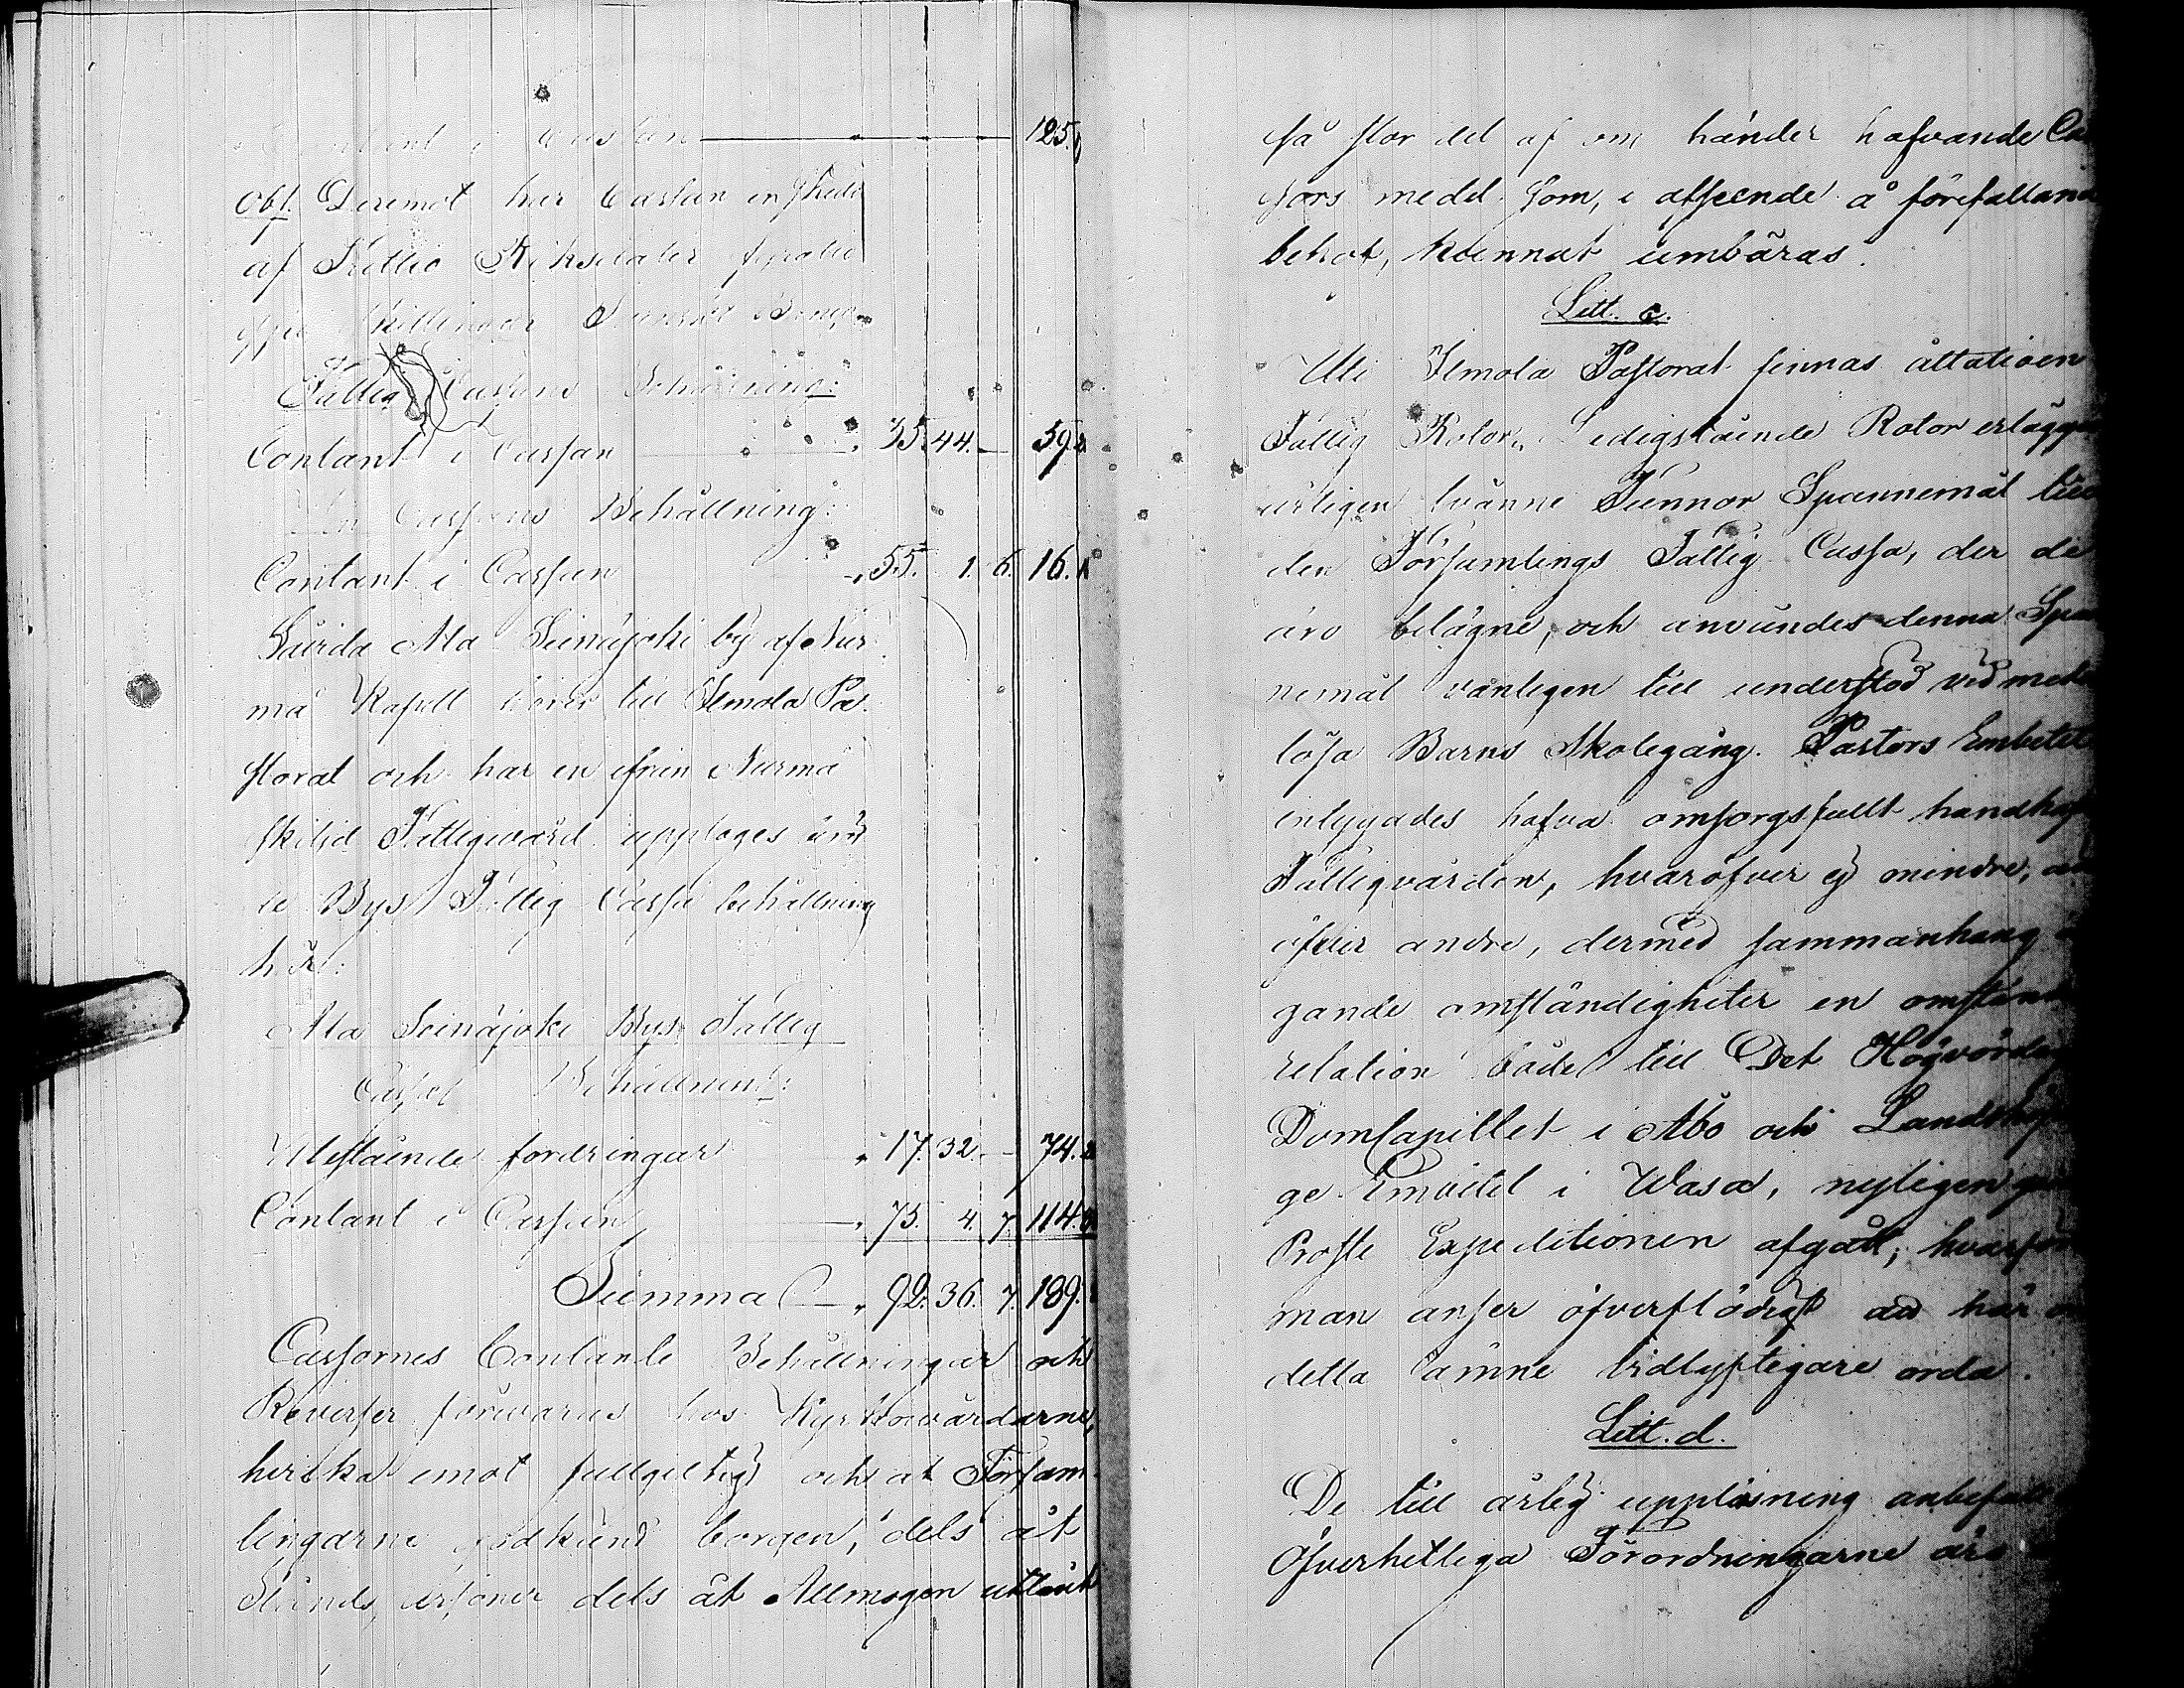 Contant i Cassan 125.
Obs. Deremot har Cassan en skuld
af Trettio Riksdaler fyratio
Skillingar Svenskt
Fattig Cassans Behållning:
Contant i Cassan " 35. 44. — 59.
Cassans Behållning:
Contant i Cassan " 55. 1. 6. 16.
Ala Seinäjoki by af Nur-
må Kapell hörer till Ilmola Pa-
storat och har en ifrån Nurmå
skiljd Fattigvård upptages äm
de Bys Fattig Cassa behållning
här:
Ala Seinäjoki Bys Fattig
Cassas Behållning:
Utestående fordringar " 17. 32. — 74.
Contant i Cassan " 75. 4. 7. 114.
Summa " 92. 36. 7. 189.
Cassornes Contante Behållningar och
Reverser förvaras hos Kyrkovärdarne,
hvilka emot fullgiltig och at Försam-
lingarne godkänd borgen, dels åt
Stånds personer dels åt Allmogen utlånt
så stor del af om händer hafvande Ca
sors medel som, i afseende å förefallan
behof, kunnat umbäras.
Litt. c.
Uti Ilmola Pastorat finnas åttatioen
Fattig Rotor. Ledigstående Rotor erlägga
årligen tvänne Tunnor Spannemål till
den Församlings Fattig Cassa, der de
äro belägne, och användes denna Span
nemål vanligen till understöd vid medel
lösa Barns Skolegång. Pastors Embetet
inlygades hafva omsorgsfullt handhaft
Fattigvården, hvaröfver ej mindre, än
öfver andre, dermed sammanhang ä
gande omständigheter en omständ
relation både till Det Högvördig
DomCapitlet i Åbo och Landshöf
ge Embetet i Wasa, nyligen
Proste Expeditionen afgått; hvarför
man anser öfverflödigt att här om
detta ämne vidlyftigare orda.
Litt. d.
De till årlig uppläsning anbefall
Öfverhetliga Förordningarne äro